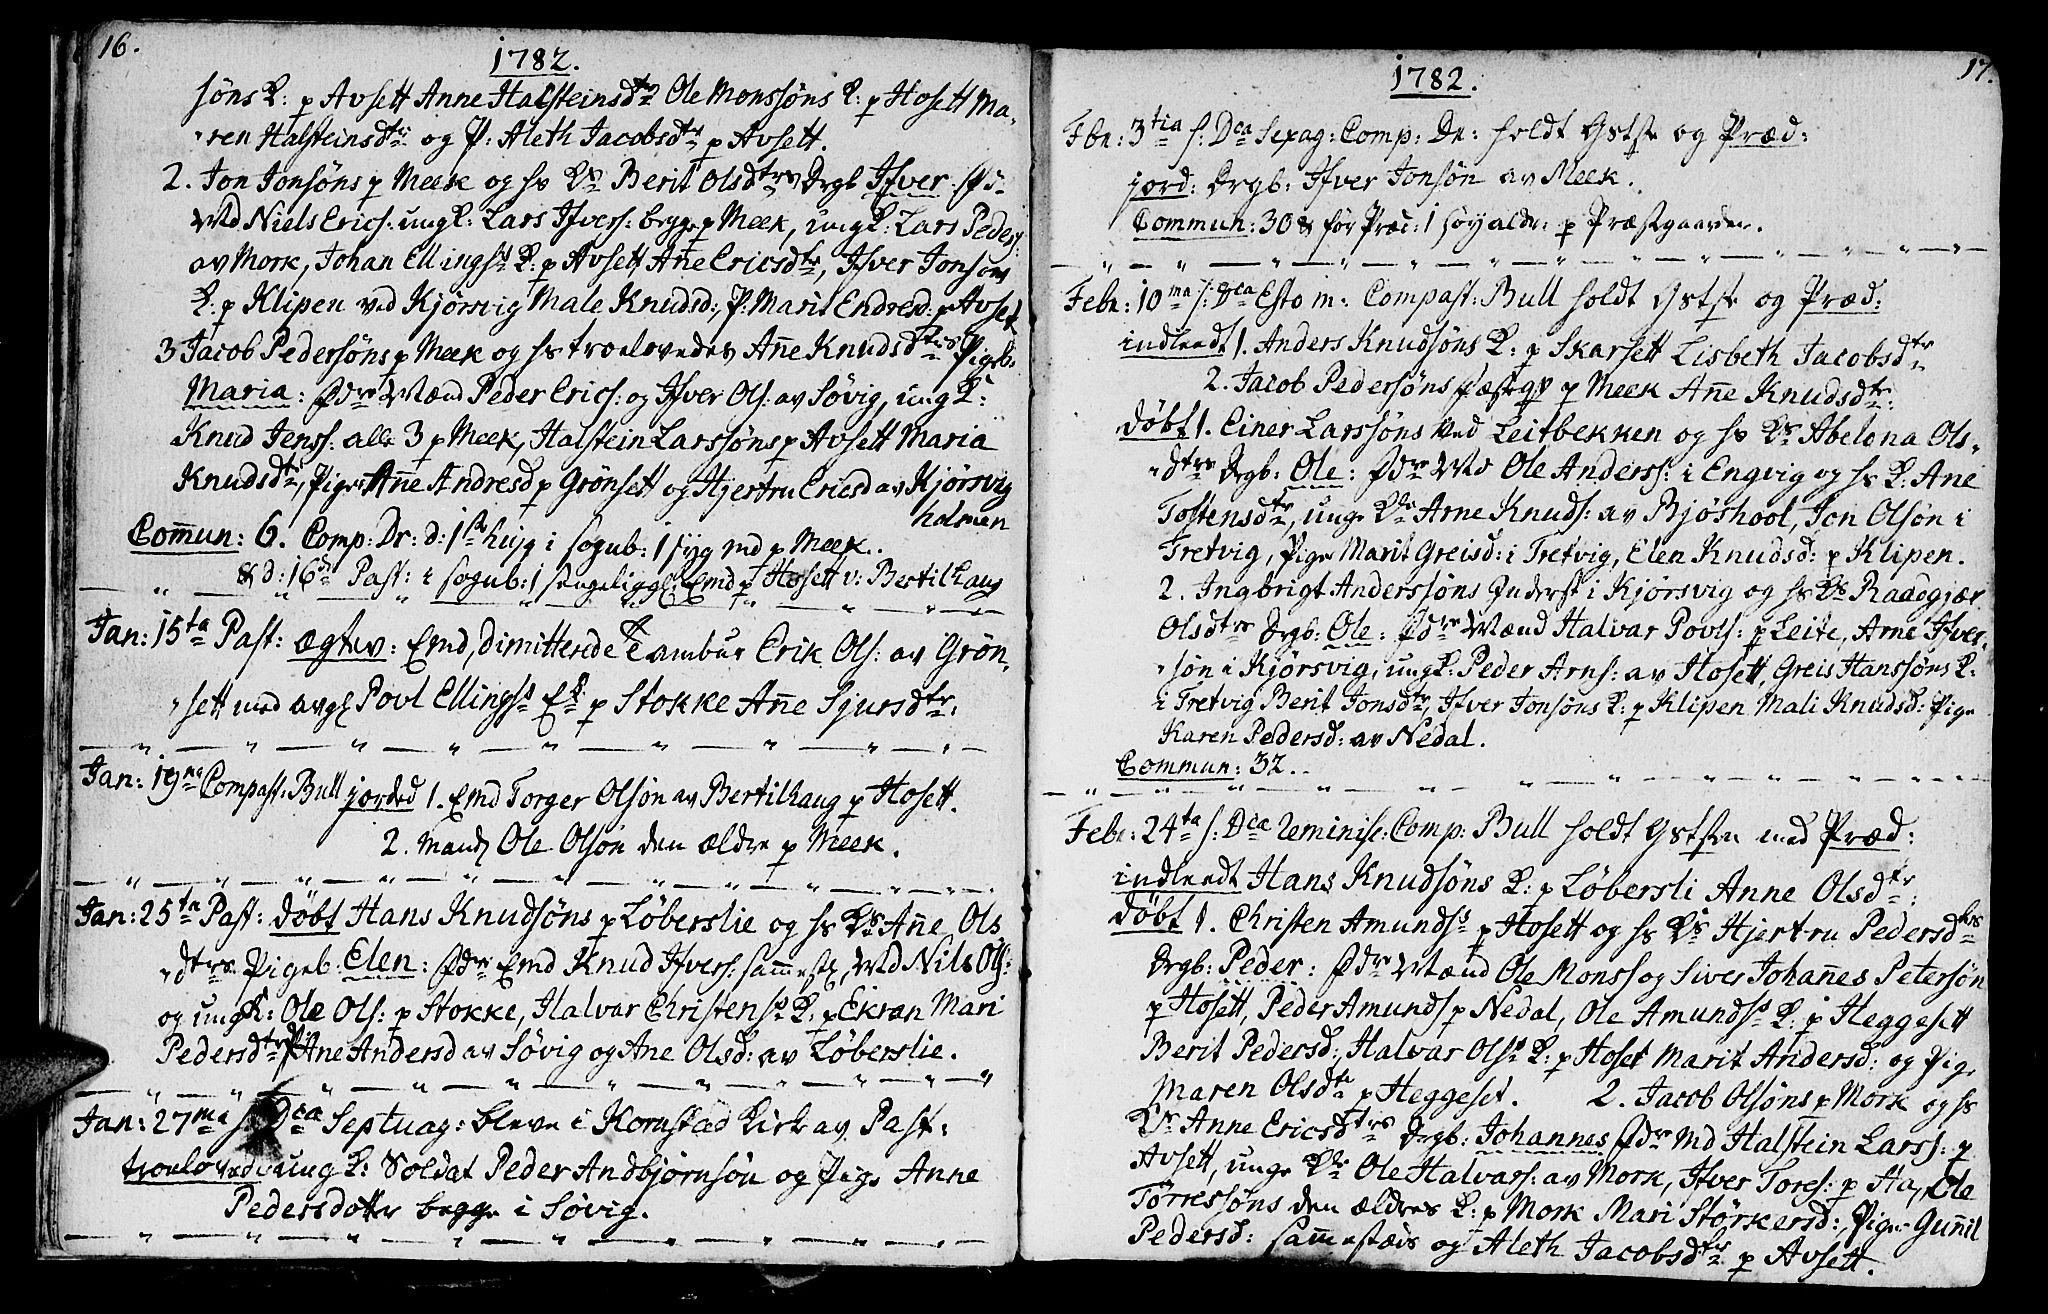 16.
1782.
søns K: p Avsett Anne Halsteinsdtr Ole Monssøns K: p Hosett Ma-
ren Halsteinsdtr og P: Aleth Jacobsdtr p Avsett.
2. Jon Jonsøns p Meek og hs Ks Berit Olsdtrs Drgb Ifver
Md Niels Erics: ung K: Lars Ifvers: begge p Meek, ung K: Lars Peders:
av Mork, Johan Ellings K: p Avsett Añe Ericsdtr, Ifver Jonsøns
K: p Klipen ved Kjørsvig Male Knudsd:, P: Marit Endresd: p Avset
3 Jacob Pedersøns p Meek og hs troelovedes Añe Knudsdtrs Pigeb:
Maria: Fdre Mænd Peder Erics: og Ifver Ols: av Søvig, ung K:
Knud Jenss: alle 3 p Meek, Halstein Larssøns p Avsett Maria
Knudsdtr, Piger Añe Andresd p Grønsett og Hjertru Ericsd av Kjørsvig
holmen
Com̄un: 6. Comp: Dr: d: 1ste hujg i sogub: 1 syg md p Meek.
& d: 16de Past: i sogub: 1 sengeligg: Emd p Hosett v: Bertilhaug
Jan: 15ta Past: ægtev: Emd, Dimitterede Tambur Erik Ols: av Grøn-
sett med avg: Povl Ellings Ek: p Stokke Añe Sjursdtr.
Jan: 19na Compast: Bull jorded 1. Emd Torger Olsøn av Bertilhaug p Hosett.
2. Mand Ole Olsøn den ældre p Meek.
Jan: 25ta Past: døbt Hans Knudsøns p Løberslie og hs Ks Añe Ols
dtrs Pigeb: Elen: Fdre Emd Knud Ifvers: sam̄est:, Md Nils Ols:
og ung K: Ole Ols: p Stokke, Halvar Christens K: p Eikran Mari
Pedersdtr P Ane Andersd av Søvig og Ane Olsd: av Løberslie.
Jan: 27ma s: Dca Septuag: bleve i Kornstad Kirke av Past:
troelovede ung K: Soldat Peder Andbjørnsøn og Pige Anne
Pedersdotter begge i Søvig.
17.
1782.
Fbr: 3tia s: Dca Sexag: Comp: Dr: holdt Gstste og Præd:
jord: Drgb: Ifver Jonsøn av Meek.
Commun: 30 & før Præd: 1 søyaldr: p Præstgaarden.
Febr: 10ma s: Dca Esto m: Compast: Bull holdt Gstste og Præd:
indleedt 1. Anders Knudsøns K: p Skarsett Lisbeth Jacobsdtr
2. Jacob Pedersøns p Meek Añe Knudsdtr:
døbt 1. Einer Larssøns ved Leitbekken og hs Ks Abelona Ols-
dtrs Drgb: Ole: Fdre Md Ole Anderss: i Engvig og hs K: Ane
Tostensdtr, unge Kle Arne Knuds: av Bjøshool, Jon Olsøn i
Tretvig, Pige Marit Greisd: i Tretvig, Elen Knudsd: p Klipen.
2. Ingbrigt Anderssøns Inderst i Kjørsvig og hs Ks Raadgjær
Olsdtrs Drgb: Ole: Fdre Mænd Halvar Povls: p Leite, Arne Ifver-
søn i Kjørsvig, ung K: Peder Arns: av Hosett, Greis Hanssøns K:
i Tretvig Berit Jonsdtr, Ifver Jonsøns K: p Klipen Mali Knudsd: Pige
Karen Pedersd: av Nedal.
Commun: 32.
Febr: 24ta s: Dca Reminisc: Comp: Bull holdt Gststen med Præd:
indleedt Hans Knudsøns K: p Løbersli Anne Olsdtr:
døbt 1. Christen Amunds p Hosett og hs Ks Hjertru Pedersdtrs
Drgb: Peder: Fdre Mænd Ole Monss og Siver Johañes Petersøn
p Hosett, Peder Amunds p Nedal, Ole Amunds K: p Heggesett
Berit Pedersd:, Halvar Ols K: p Hoset Marit Andersd: og Pige
Maren Olsdtr p Heggeset. 2. Jacob Olsøns p Mork og hs
Ks Anne Ericsdtrs Drgb: Johannes Fdre Md Halstein Larss: p
Avsett, unge Kle Ole Halvars: av Mork, Ifver Tores: p Ha, Ole
Tørressøns den ældres K: p Mork Mari Størkersd:, Piger Guñil
Pedersd: sam̄esteds og Aleth Jacobsdtr p Avsett.